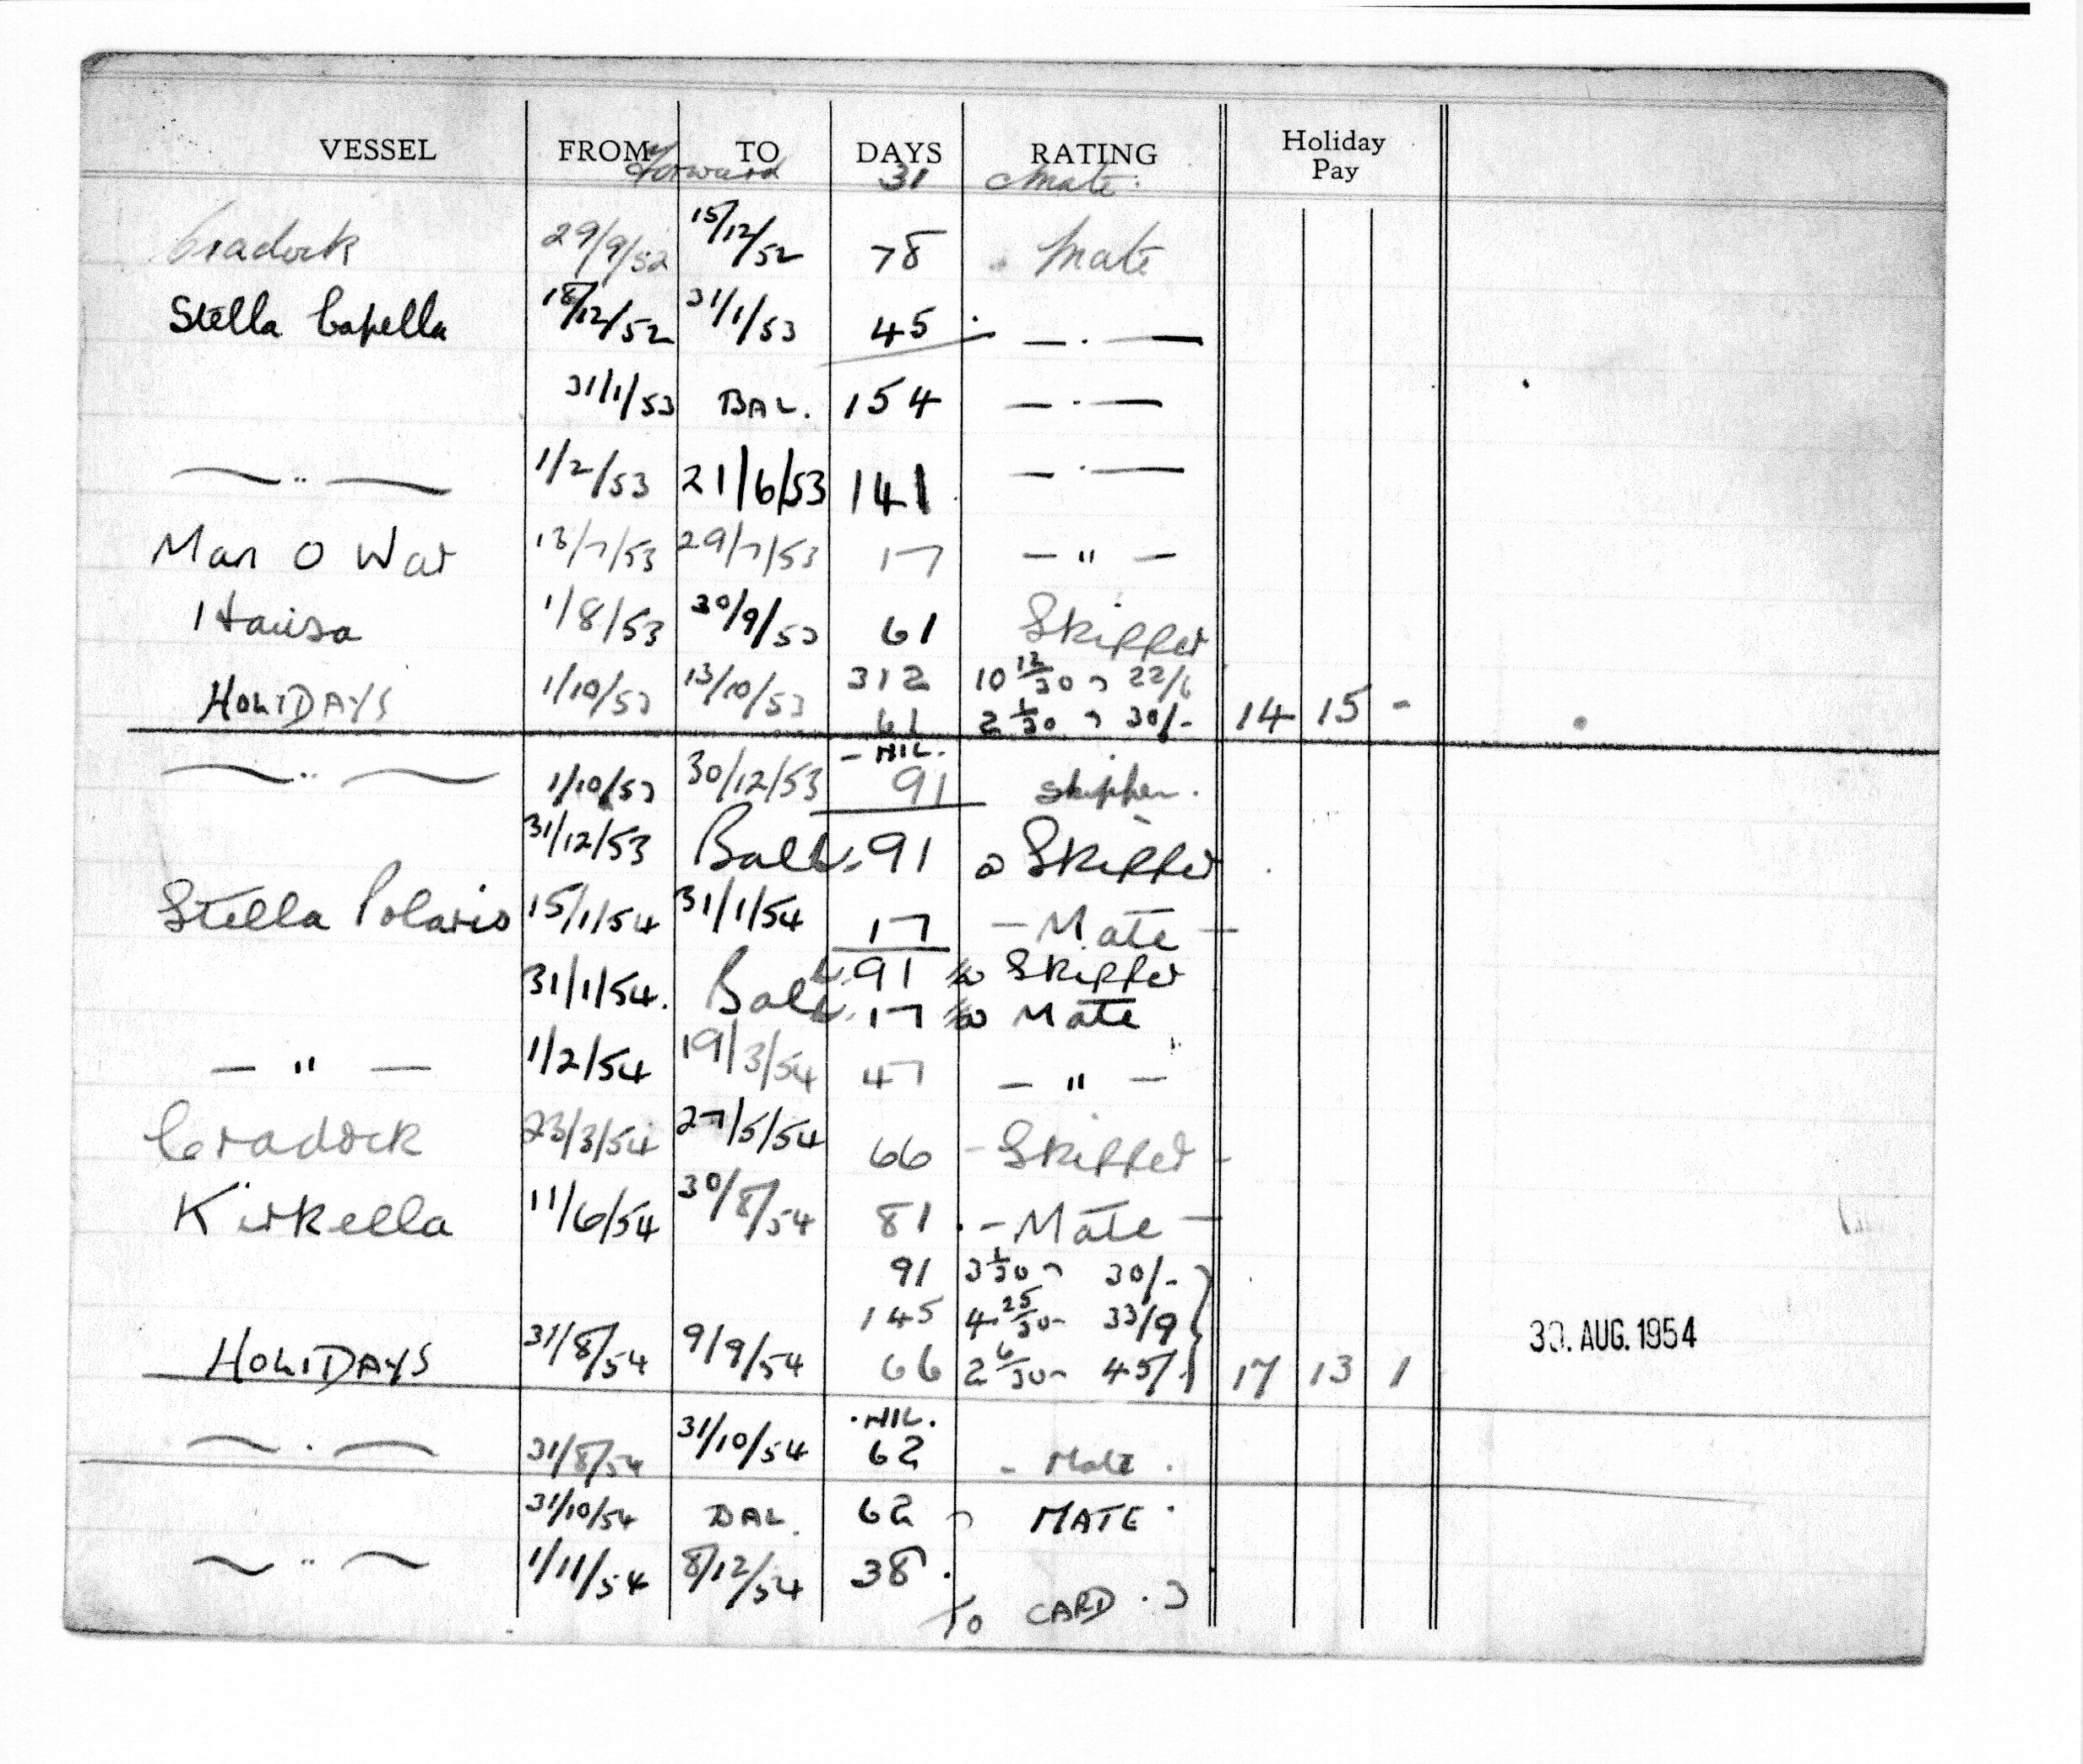 VESSEL FROM TO DAYS RATING Holiday Pay
Forward 31 Mate.
Cradock 29/9/52 15/12/52 78 Mate
Stella Capella 18/12/52 31/1/53 45 — . —
31/1/53 BAL. 154 — . —
— " — 1/2/53 21/6/53 141 — . —
Man O War 13/7/53 29/7/53 17 — " —
Hausa 1/8/53 30/9/53 61 Skipper
312 10 12/30 22/6
HOLIDAYS 1/10/53 13/10/53 61 2 1/30 30/- 14 15 -
- NIL.
— " — 1/10/53 30/12/53 91 Skipper.
31/12/53 Ball. 91 a Skipper
Stella Polaris 15/1/54 31/1/54 17 — Mate —
31/1/54. Ball. 91 Skipper
17 Mate
— " — 1/2/54 19/3/54 47 — " —
Cradock 23/3/54 27/5/54 66 - Skipper -
Kirkella 11/6/54 30/8/54 81 . - Mate —
91 3 1/30 30/-
145 4 25/30 33/9
30. AUG. 1954
HOLIDAYS 31/8/54 9/9/54 66 2 6/30 45/- 17 13 1
. NIL.
— . — 31/8/54 31/10/54 62 - Mate .
31/10/54 BAL. 62 MATE .
— " — 1/11/54 8/12/54 38 .
To CARD . 3